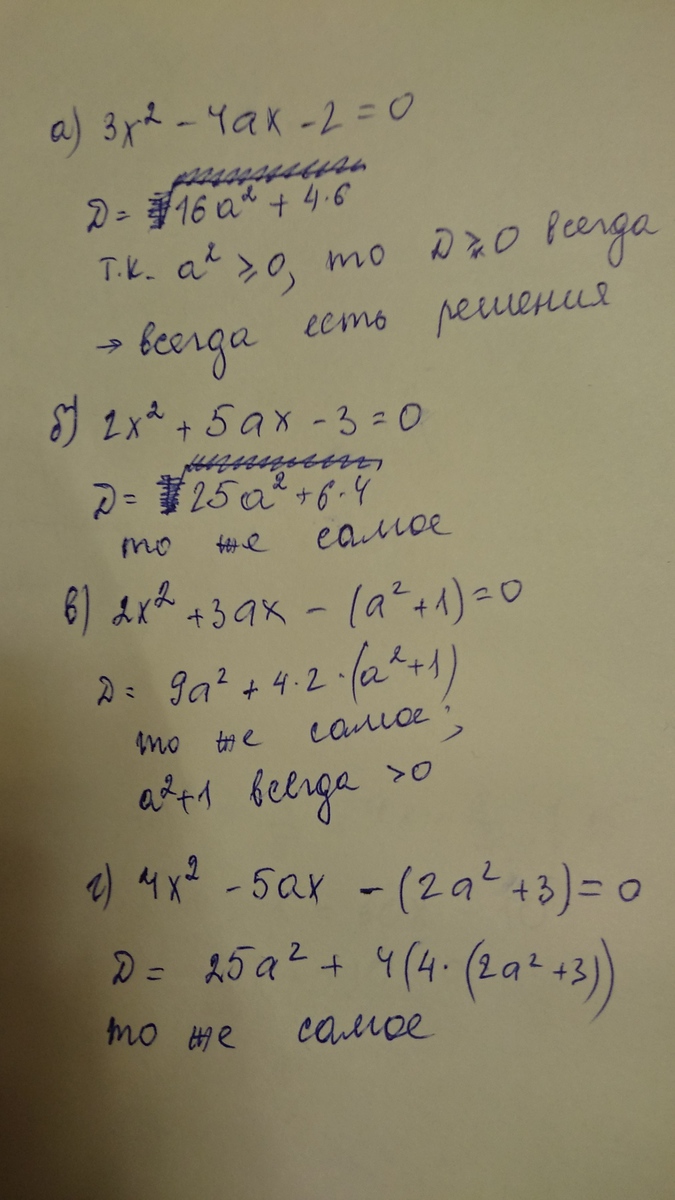 а) 3x² - 4ax - 2 = 0
Д = 16a² + 4·6
т.к. a² ⩾ 0, то Д ⩾ 0 всегда
→ всегда есть решения
б) 2x² + 5ax - 3 = 0
Д = 25a² + 6·4
то же самое
в) 2x² + 3ax - (a² + 1) = 0
Д = 9a² + 4·2·(a² + 1)
то же самое;
a² + 1 всегда > 0
г) 4x² - 5ax - (2a² + 3) = 0
Д = 25a² + 4(4·(2a² + 3))
то же самое